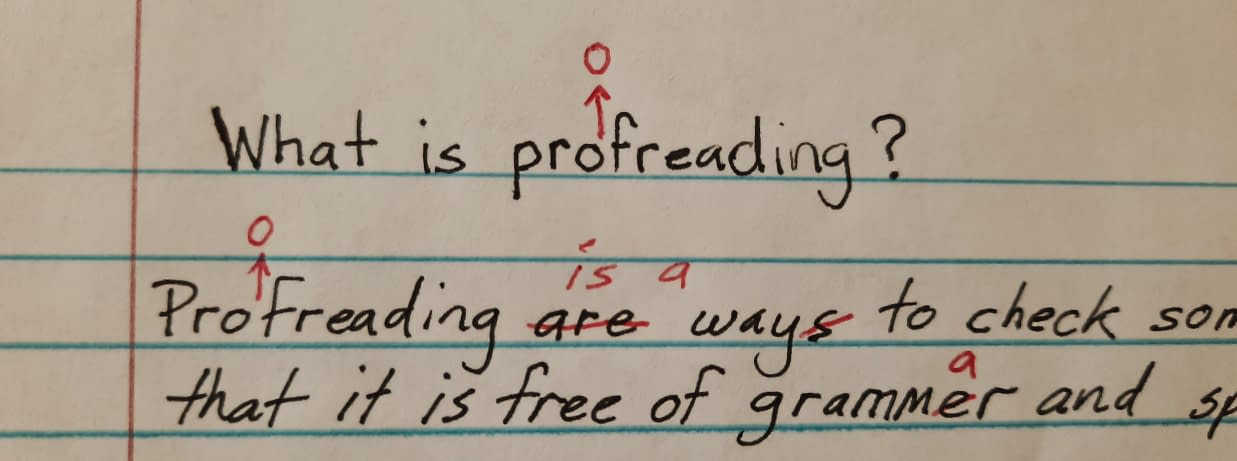 o
What is profreading?
o is a
Profreading are ways to check
a
that it is free of grammer and